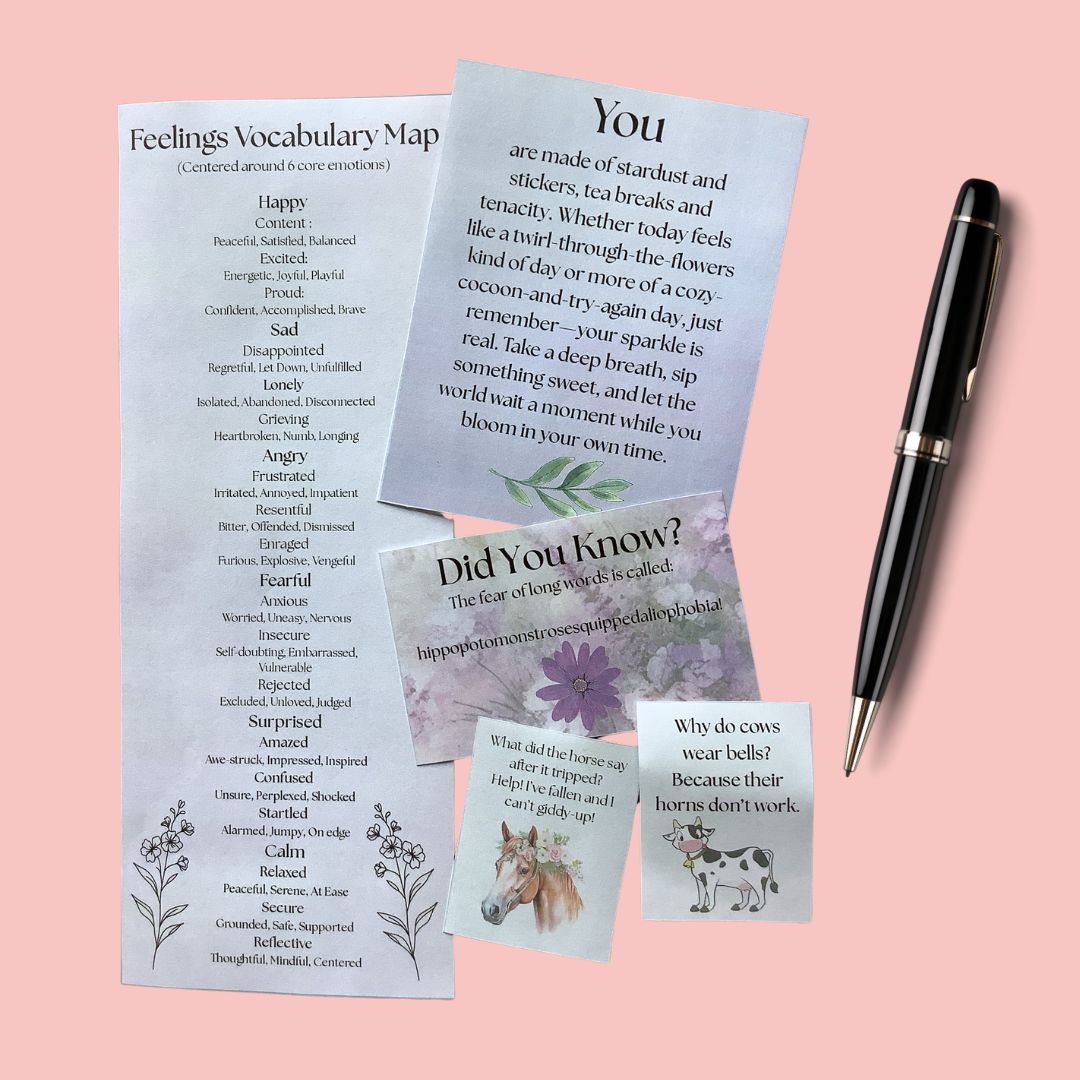 Feelings Vocabulary Map
(Centered around 6 core emotions)
Happy
Content :
Peaceful, Satisfied, Balanced
Excited:
Energetic, Joyful, Playful
Proud:
Confident, Accomplished, Brave
Sad
Disappointed
Regretful, Let Down, Unfulfilled
Lonely
Isolated, Abandoned, Disconnected
Grieving
Heartbroken, Numb, Longing
Angry
Frustrated
Irritated, Annoyed, Impatient
Resentful
Bitter, Offended, Dismissed
Enraged
Furious, Explosive, Vengeful
Fearful
Anxious
Worried, Uneasy, Nervous
Insecure
Self-doubting, Embarrassed,
Vulnerable
Rejected
Excluded, Unloved, Judged
Surprised
Amazed
Awe-struck, Impressed, Inspired
Confused
Unsure, Perplexed, Shocked
Startled
Alarmed, Jumpy, On edge
Calm
Relaxed
Peaceful, Serene, At Ease
Secure
Grounded, Safe, Supported
Reflective
Thoughtful, Mindful, Centered
You
are made of stardust and
stickers, tea breaks and
tenacity. Whether today feels
like a twirl-through-the-flowers
kind of day or more of a cozy-
cocoon-and-try-again day, just
remember—your sparkle is
real. Take a deep breath, sip
something sweet, and let the
world wait a moment while you
bloom in your own time.
Did You Know?
The fear of long words is called:
hippopotomonstrosesquippedaliophobia!
What did the horse say
after it tripped?
Help! I've fallen and I
can't giddy-up!
Why do cows
wear bells?
Because their
horns don't work.